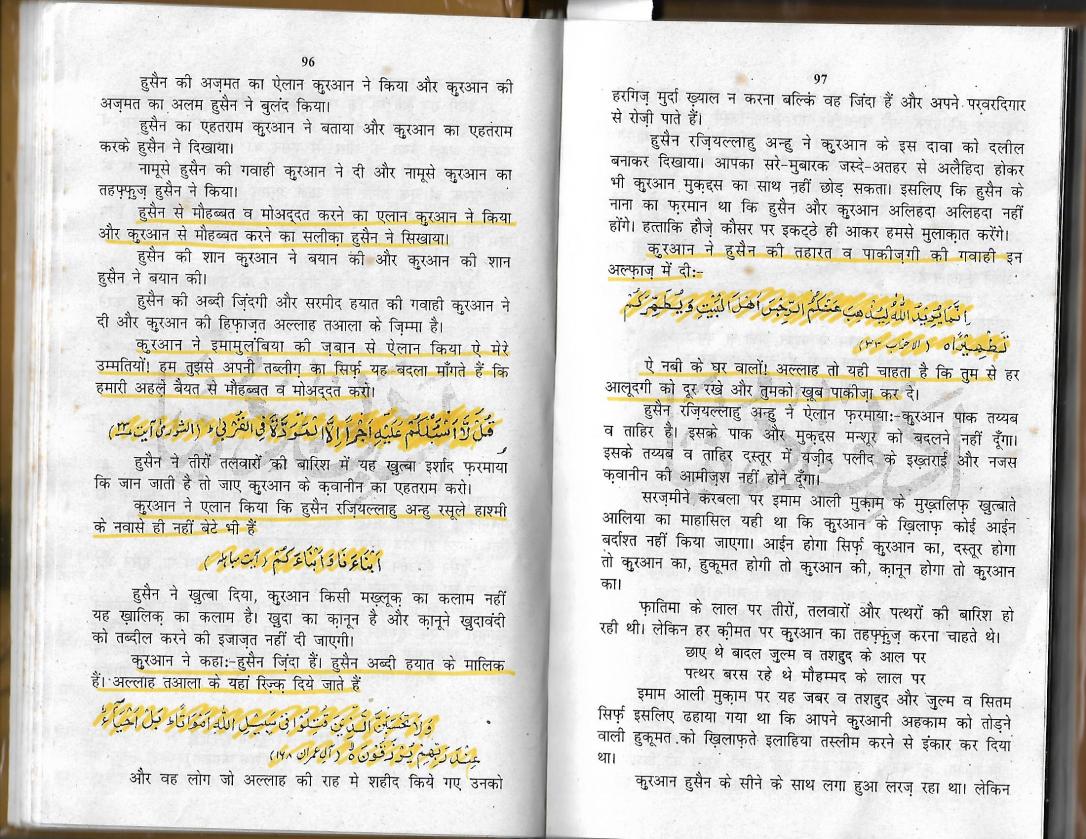 96
हुसैन की अज़मत का ऐलान कुरआन ने किया और कुरआन की
अज़मत का अलम हुसैन ने बुलंद किया।
हुसैन का एहतराम कुरआन ने बताया और कुरआन का एहतराम
करके हुसैन ने दिखाया।
नामूसे हुसैन की गवाही कुरआन ने दी और नामूसे कुरआन का
तहफ्फुज़ हुसैन ने किया।
हुसैन से मौहब्बत व मोअद्दत करने का एलान कुरआन ने किया
और कुरआन से मौहब्बत करने का सलीका़ हुसैन ने सिखाया।
हुसैन की शान कुरआन ने बयान की और कुरआन की शान
हुसैन ने बयान की।
हुसैन की अब्दी जि़ंदगी और सरमिद हयात की गवाही कुरआन ने
दी और कुरआन की हिफा़ज़त अल्लाह तआला के जि़म्मा है।
कुरआन ने इमामुलंबिया की ज़बान से ऐलान किया ऐ मेरे
उम्मतियों! हम तुझसे अपनी तब्लीग़ का सिर्फ यह बदला माँगते हैं कि
हमारी अहले बैयत से मौहब्बत व मोअद्दत करो।
قُلْ لَّا اَسْئَلُكُمْ عَلَيْهِ اَجْرًا اِلَّا الْمَوَدَّةَ فِى الْقُرْبٰى ؕ (الشورىٰ آیت ۲۳)
हुसैन ने तीरों तलवारों की बारिश में यह खुत्बा इर्शाद फरमाया
कि जान जाती है तो जाए कुरआन के क़वानीन का एहतराम करो।
कुरआन ने एलान किया कि हुसैन रज़ियल्लाहु अन्हु रसूले हाश्मी
के नवासे ही नहीं बेटे भी हैं
اَبْنَآءَنَا وَ اَبْنَآءَكُمْ (آیت مباہلہ)
हुसैन ने खुत्बा दिया, कुरआन किसी मख़्लूक़ का कलाम नहीं
यह ख़ालिक़ का कलाम है। खुदा का का़नून है और का़नूने खुदावंदी
को तब्दील करने की इजाज़त नहीं दी जाएगी।
कुरआन ने कहा:-हुसैन जि़ंदा हैं। हुसैन अब्दी हयात के मालिक
हैं। अल्लाह तआला के यहां रिज़्क़ दिये जाते हैं
وَلَا تَحْسَبَنَّ الَّذِيْنَ قُتِلُوْا فِىْ سَبِيْلِ اللّٰهِ اَمْوَاتًا ؕ بَلْ اَحْيَآءٌ
عِنْدَ رَبِّهِمْ يُرْزَقُوْنَ ۙ (آل عمران ۱۶۸)
और वह लोग जो अल्लाह की राह मे शहीद किये गए उनको
97
हरगिज़ मुर्दा ख़्याल न करना बल्कि वह जिंदा हैं और अपने परवरदिगार
से रोज़ी पाते हैं।
हुसैन रज़ियल्लाहु अन्हु ने कुरआन के इस दावा को दलील
बनाकर दिखाया। आपका सरे-मुबारक जस्दे-अतहर से अलैहिदा होकर
भी कुरआन मुक़द्दस का साथ नहीं छोड़ सकता। इसलिए कि हुसैन के
नाना का फ़रमान था कि हुसैन और कुरआन अलिहदा अलिहदा नहीं
होंगे। हत्ताकि हौजे़ कौसर पर इकट्ठे ही आकर हमसे मुलाका़त करेंगे।
कुरआन ने हुसैन की तहारत व पाकीज़गी की गवाही इन
अल्फ़ाज़ में दी:-
اِنَّمَا يُرِيْدُ اللّٰهُ لِيُذْهِبَ عَنْكُمُ الرِّجْسَ اَهْلَ الْبَيْتِ وَيُطَهِّرَكُمْ
تَطْهِيْرًا ۝ (الاحزاب ۳۳)
ऐ नबी के घर वालों! अल्लाह तो यही चाहता है कि तुम से हर
आलूदगी को दूर रखे और तुमको खूब पाकीज़ा कर दे।
हुसैन रज़ियल्लाहु अन्हु ने ऐलान फ़रमाया:-कुरआन पाक तय्यब
व ताहिर है। इसके पाक और मुक़द्दस मन्शूर को बदलने नहीं दूँगा।
इसके तय्यब व ताहिर दस्तूर में यज़ीद पलीद के इख़्तराई और नजस
क़वानीन की आमीज़श नहीं होने दूँगा।
सरज़मीने करबला पर इमाम आली मुका़म के मुख़्तलिफ़ खुत्बाते
आलिया का माहासिल यही था कि कुरआन के खि़लाफ़ कोई आईन
बर्दाश्त नहीं किया जाएगा। आईन होगा सिर्फ़ कुरआन का, दस्तूर होगा
तो कुरआन का, हुकूमत होगी तो कुरआन की, का़नून होगा तो कुरआन
का।
फा़तिमा के लाल पर तीरों, तलवारों और पत्थरों की बारिश हो
रही थी। लेकिन हर की़मत पर कुरआन का तहफ्फुज़ करना चाहते थे।
छाए थे बादल जुल्म व तशद्दुद के आल पर
पत्थर बरस रहे थे मौहम्मद के लाल पर
इमाम आली मुका़म पर यह जबर व तशद्दुद और जुल्म व सितम
सिर्फ़ इसलिए ढहाया गया था कि आपने कुरआनी अहकाम को तोड़ने
वाली हुकूमत को खि़लाफ़ते इलाहिया तस्लीम करने से इंकार कर दिया
था।
कुरआन हुसैन के सीने के साथ लगा हुआ लरज़ रहा था। लेकिन